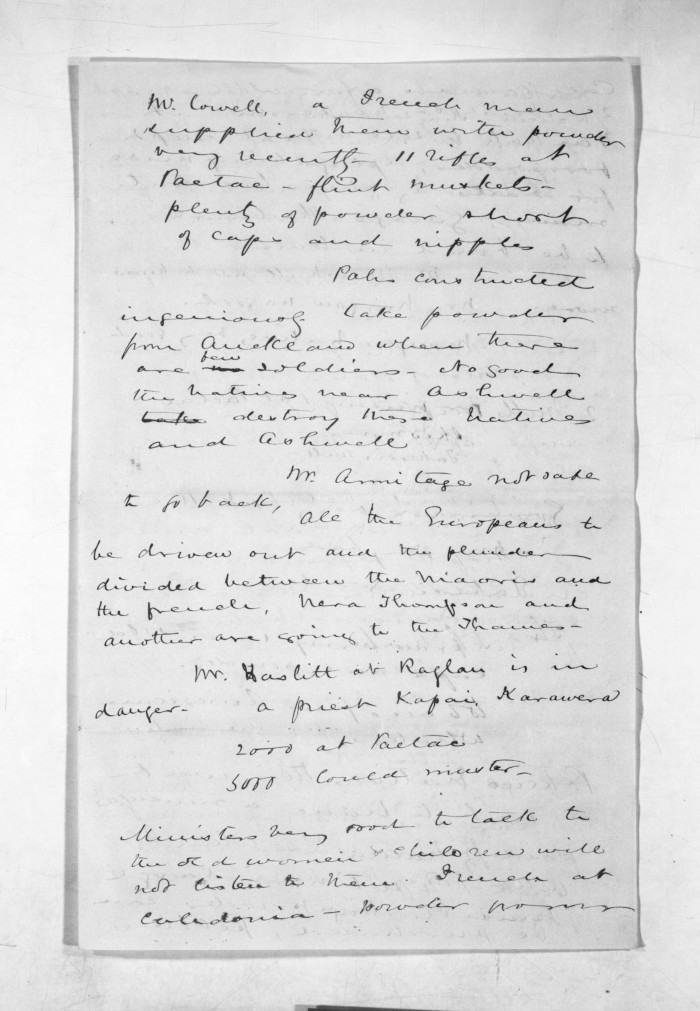 Mr. Cowell, a French man
supplied them with powder
very recently - 11 rifles at
Paetae - flint muskets -
plenty of powder short
of caps and nipples
Pahs constructed
ingeniously take powder
from Auckland when there
are few soldiers - No good
the Natives near Ashwell
take destroy these Natives
and Ashwell
Mr. Armitage not safe
to go back,
All the Europeans to
be driven out and the plunder
divided between the Maoris and
the french, Nera Thompson and
another are going to the Thames -
Mr. Haslitt at Raglan is in
danger - a priest Kapai Karawera
2000 at Paetae
5000 could muster -
Ministers very good to talk to
the old women & children will
not listen to them. French at
Caledonia - powder